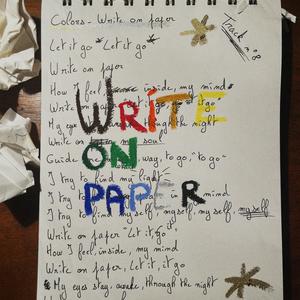 Colors - Write on paper
Track n°8
Let it go "Let it go"
Write on paper
How I feel inside, my mind
Write on
My eyes the night
Write on my soul
Guide way, to go, "to go"
I try to find my light
I try to mind
I try to find myself, myself, my self, myself
WRITE
ON
PAPER
Write on paper "Let it, go"
How I feel, inside, my mind
Write on paper, Let it, it go
My eyes stay awake, through the night